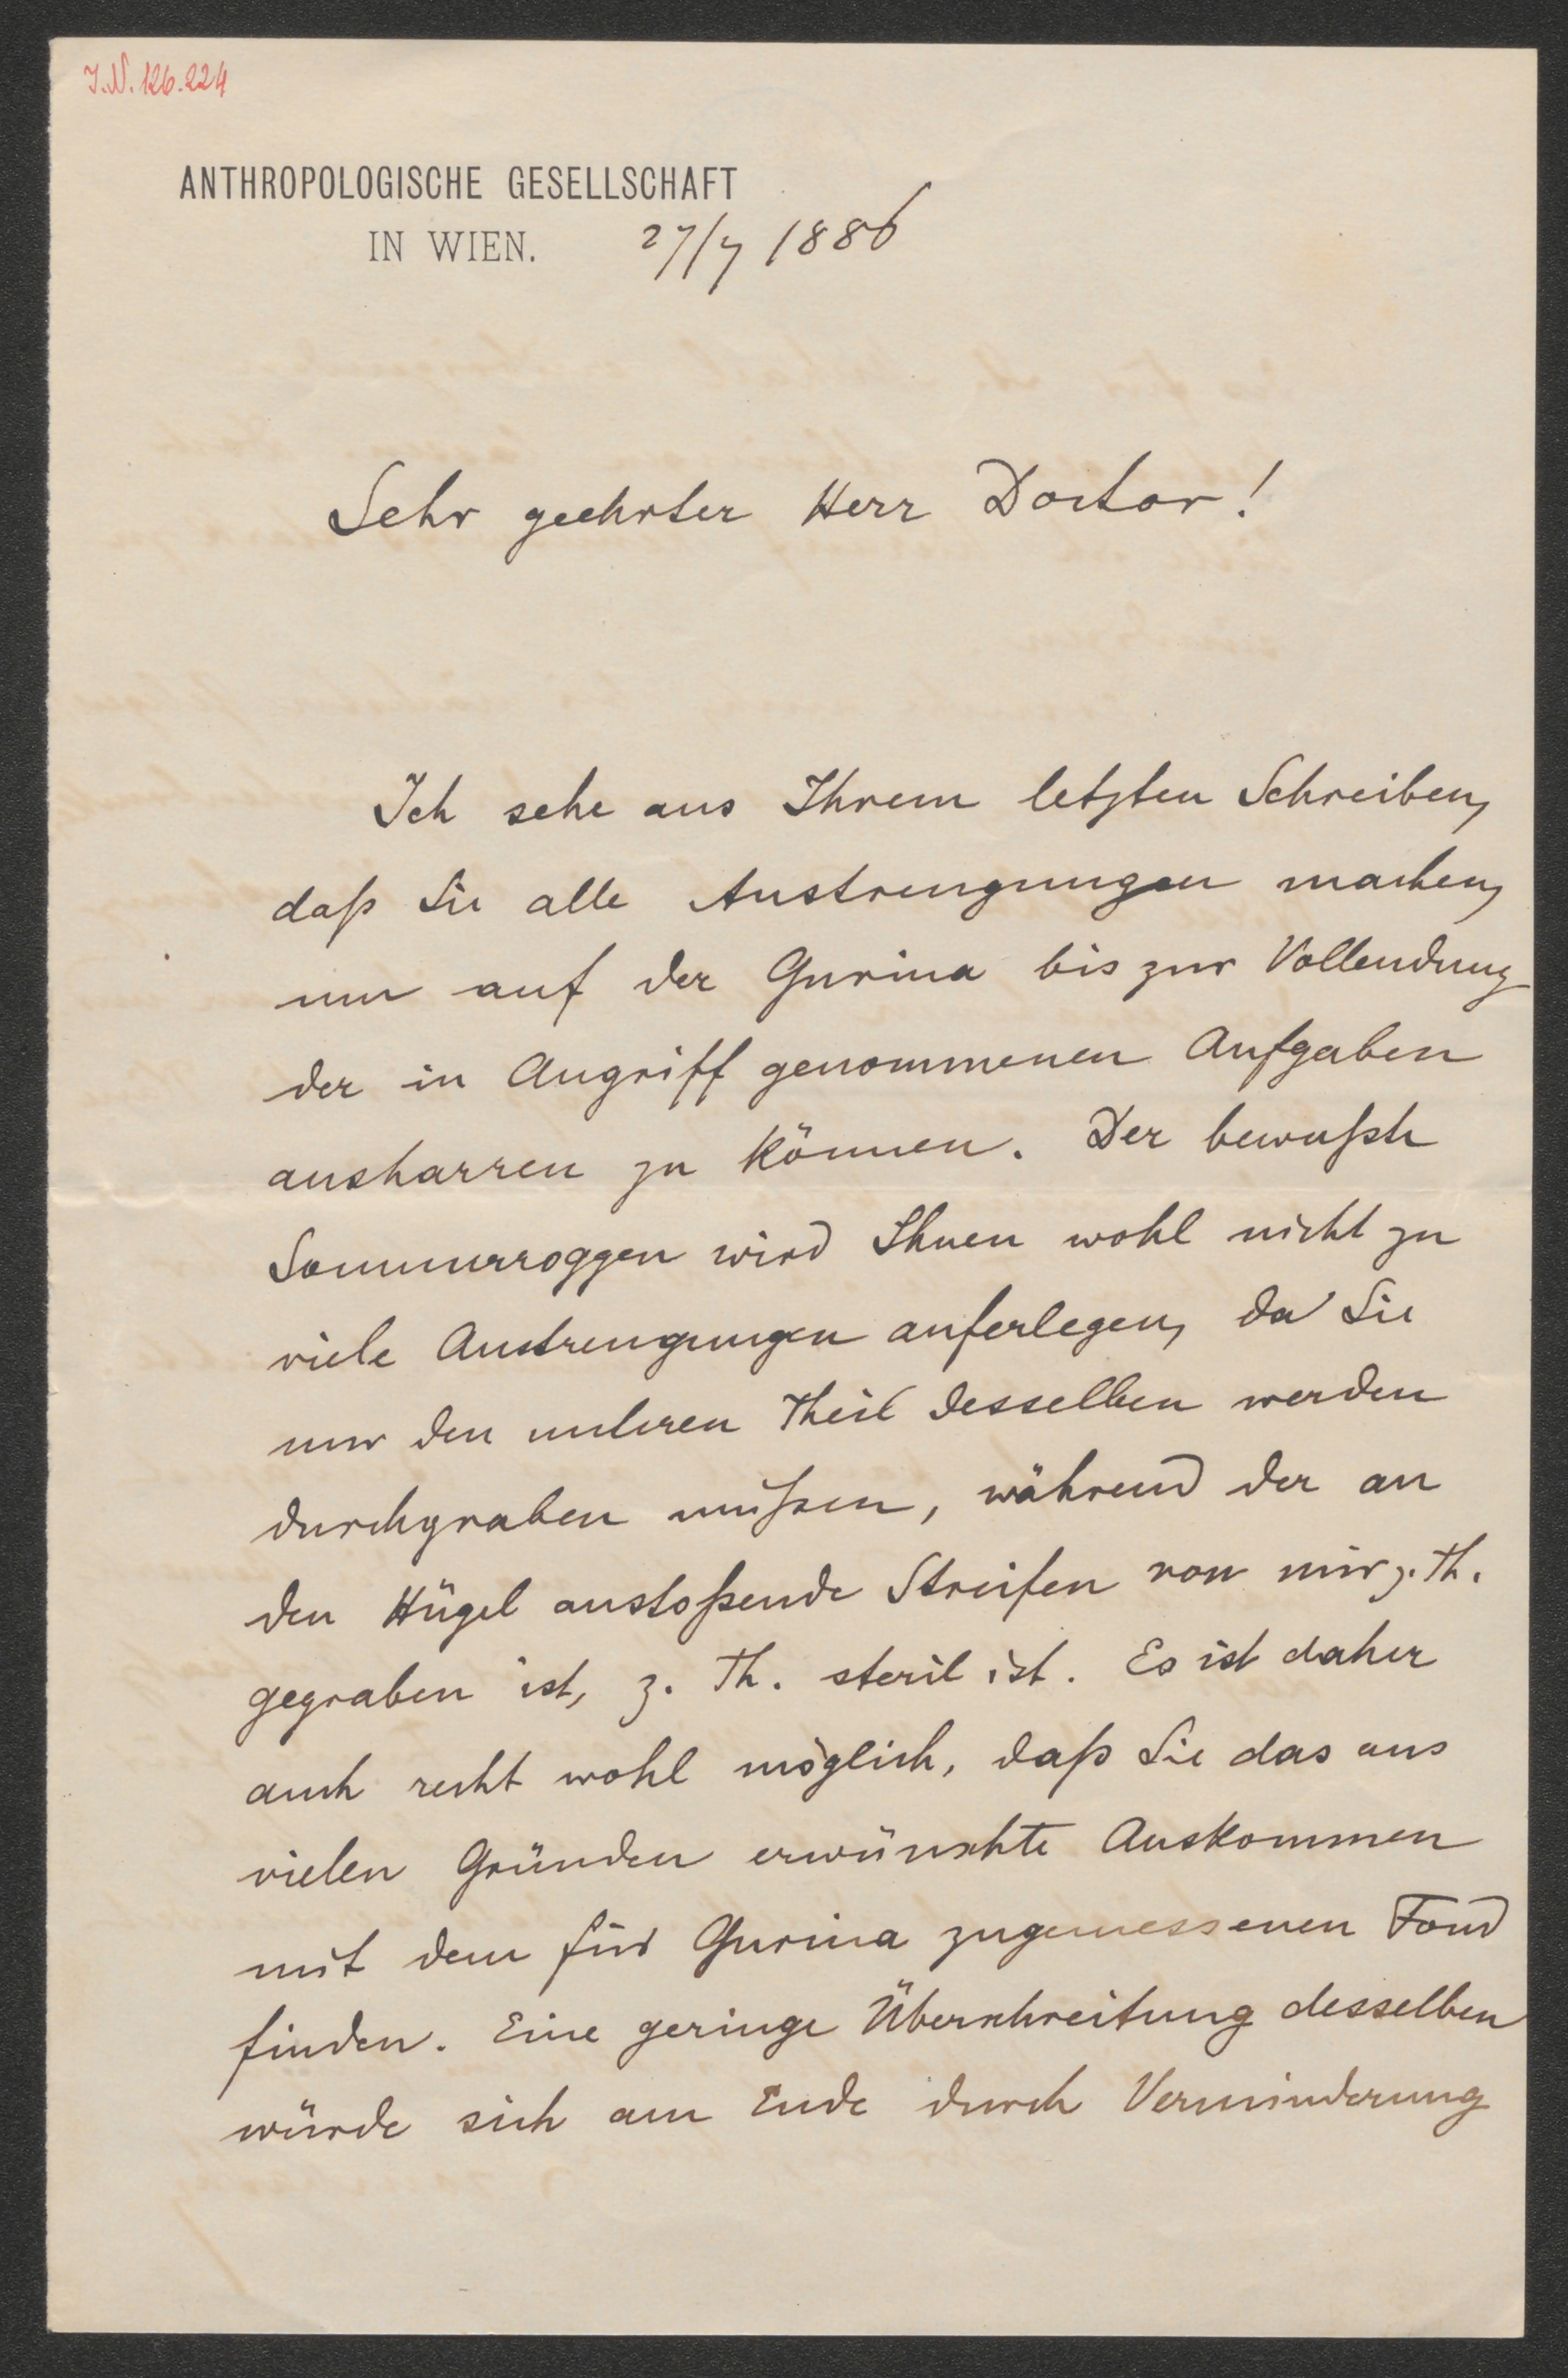 J.N. 126.224
ANTHROPOLOGISCHE GESELLSCHAFT
IN WIEN. 27/7 1886
Sehr geehrter Herr Doctor!
Ich sehe aus Ihrem letzten Schreiben,
daß Sie alle Anstrengungen machen,
um auf der Gurina bis zur Vollendung
der in Angriff genommenen Aufgaben
ausharren zu können. Der bewußte
Sommerroggen wird Ihnen wohl nicht zu
viele Anstrengungen auferlegen, da Sie
nur den unteren Theil desselben werden
durchgraben müßen, während der an
den Hügel anstoßende Streifen von mir z. Th.
gegraben ist, z. Th. steril ist. Es ist daher
auch recht wohl möglich, daß Sie das aus
vielen Gründen erwünschte Auskommen
mit dem für Gurina zugemessenen Fond
finden. Eine geringe Überschreitung desselben
würde sich am Ende durch Verminderung